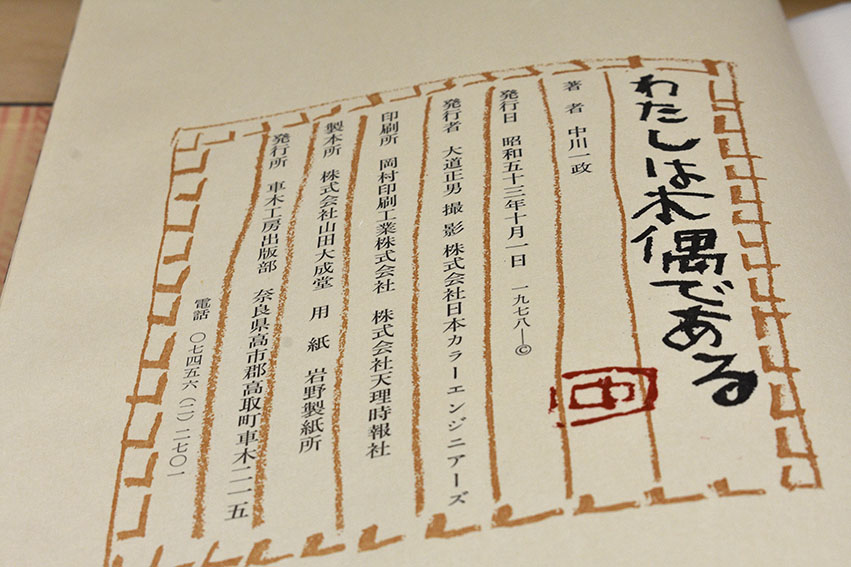 わたしは木偶である
著者 中川一政
発行日 昭和五十三年十月一日 一九七八─©
発行者 大道正男 撮影 株式会社日本カラーエンジニアーズ
印刷所 岡村印刷工業株式会社 株式会社天理時報社
製本所 株式会社山田大成堂 用紙 岩野製紙所
発行所 車木工房出版部 奈良県高市郡高取町車木二一五
電話 〇七四五六(二)二七〇一
中